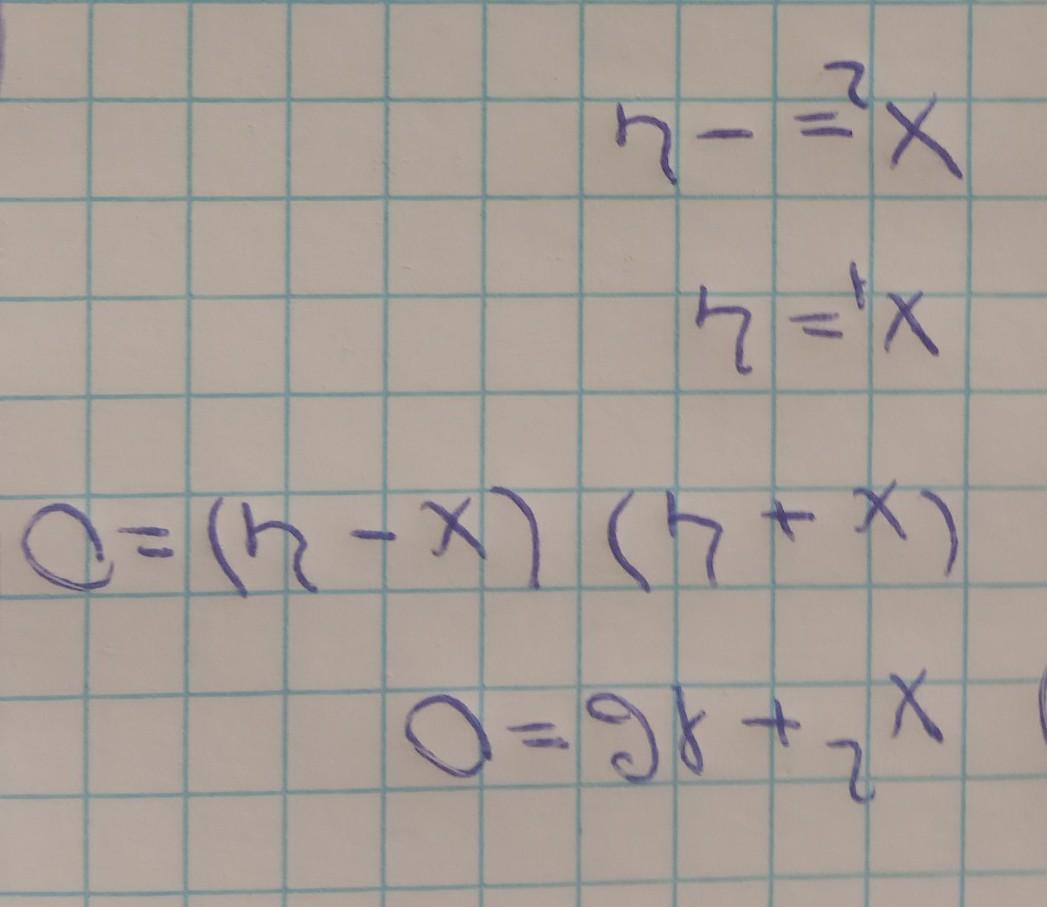 x² + 16 = 0
(x + 4) (x - 4) = 0
x₁ = 4
x₂ = - 4